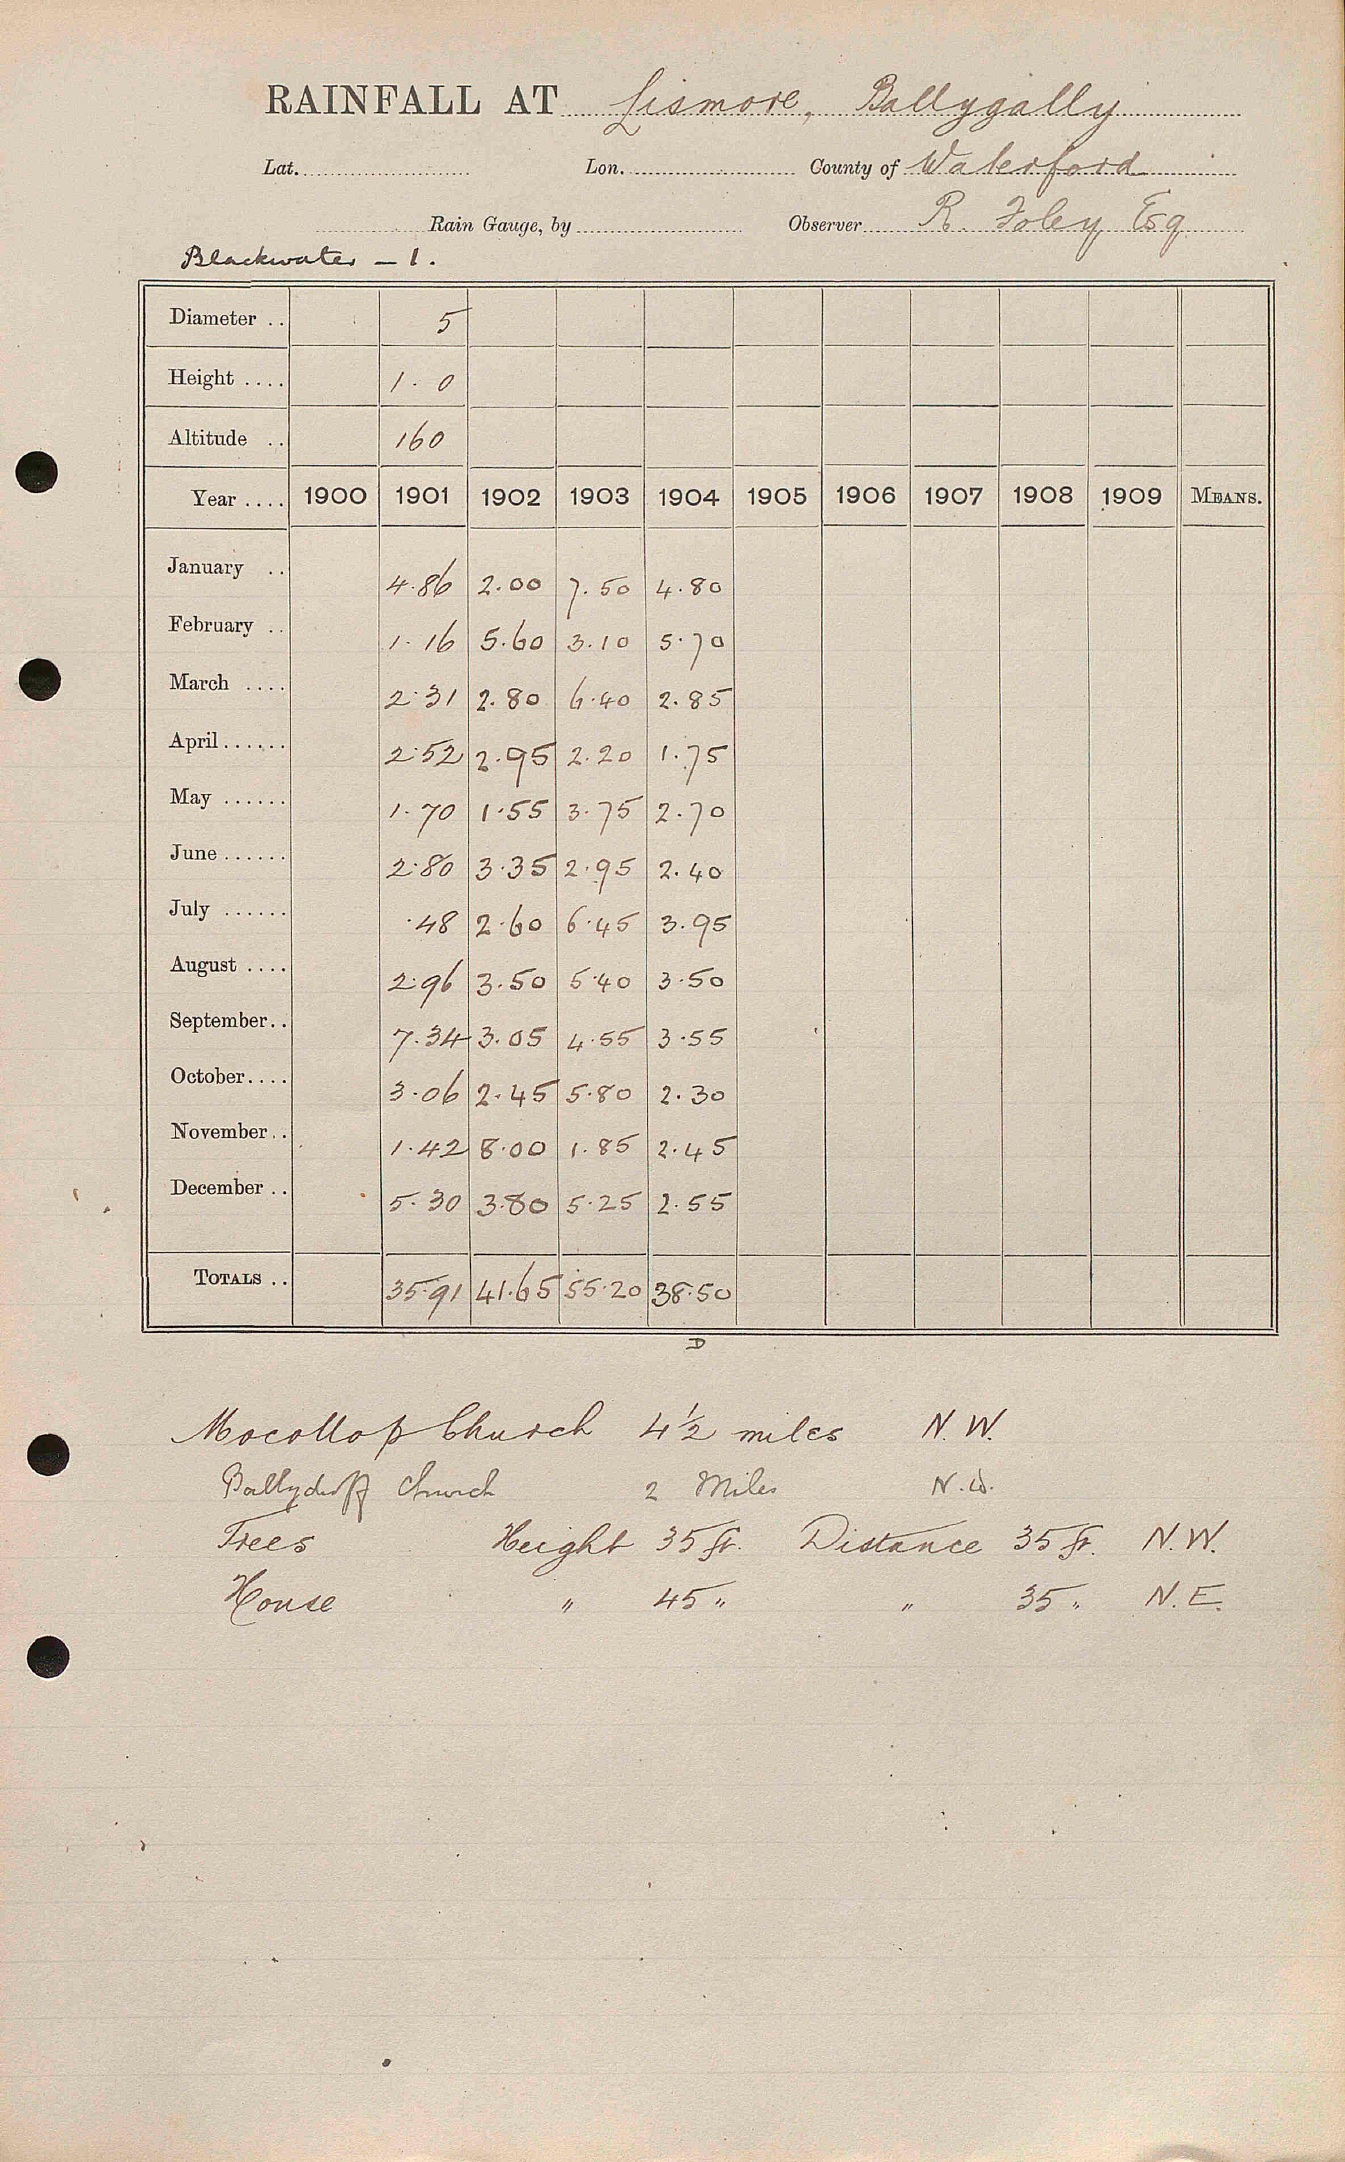 RAINFALL AT Lismore, Ballygally
Lat. Lon. County of Waterford
Rain Gauge, by Observer R. Foley Esq
Blackwater – 1.
Diameter .. 5
Height .... 1. 0
Altitude .. 160
Year .... 1900 1901 1902 1903 1904 1905 1906 1907 1908 1909 MEANS.
January .. 4.86 2.00 7.50 4.80
February .. 1.16 5.60 3.10 5.70
March .... 2.31 2.80 6.40 2.85
April ...... 2.52 2.95 2.20 1.75
May ...... 1.70 1.55 3.75 2.70
June ...... 2.80 3.35 2.95 2.40
July ...... .48 2.60 6.45 3.95
August .... 2.96 3.50 5.40 3.50
September.. 7.34 3.05 4.55 3.55
October.... 3.06 2.45 5.80 2.30
November.. 1.42 8.00 1.85 2.45
December .. 5.30 3.80 5.25 2.55
TOTALS .. 35.91 41.65 55.20 38.50
D
Mocollop Church 4½ miles N.W.
Ballyduff Church 2 Miles N.W.
Trees Height 35 ft. Distance 35 ft. N.W.
House " 45 " " 35 " N.E.